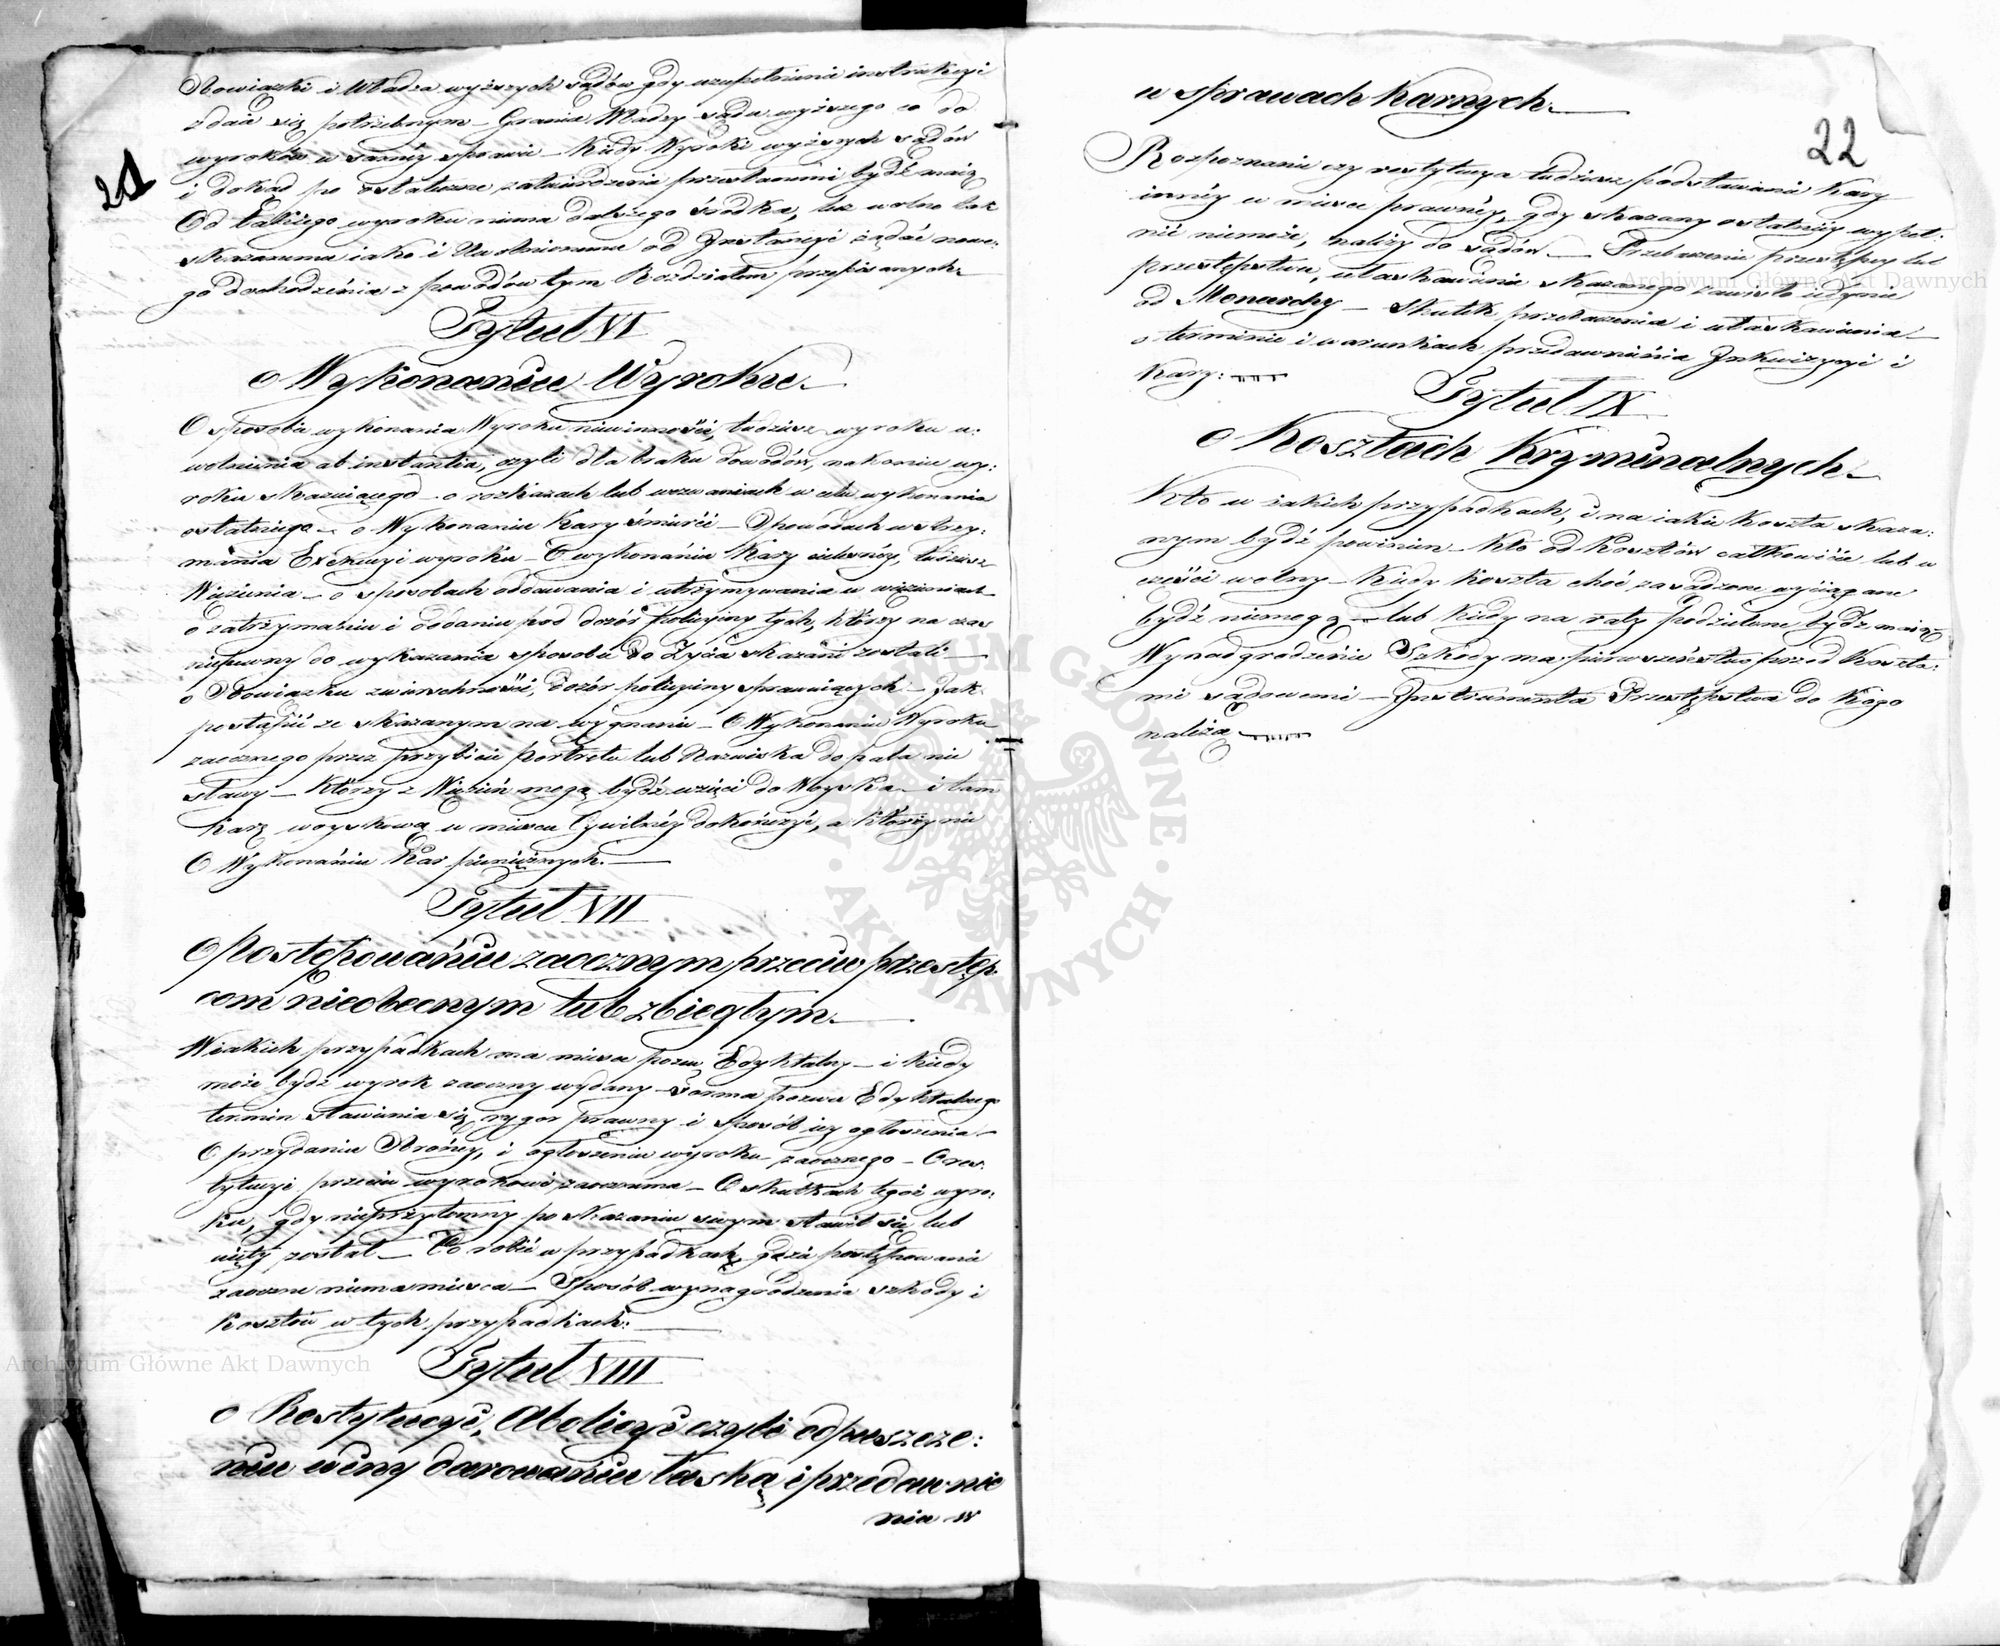 21
Obowiązki i Władza wyższych sądów gdy uzupełnienie instrukcyi
zdaie się potrzebnym – Granice Władzy sądu wyższego co do
wyroków w saméy sprawie – Kiedy Wyroki wyższych sądów
i dokąd po ostateczne zatwierdzenie przesłanemi bydź maią
Od takiego wyroku niema dalszego środka, lecz wolno tak
skazanemu iako i Uwolnionemu od Instancyi żądać nowe:
go dochodzenia z powodów tym Rozdziałem przepisanych –
Tytuł VI
o Wykonaniu Wyroku –
O sposobie wykonania Wyroku niewinności, tudzież wyroku u:
wolnienia ab instantia, czyli dla braku dowodów, nakoniec wy:
roku skazuiącego – o rozkazach lub wezwaniach w celu wykonania
ostatniego – o Wykonaniu Kary śmierci – O powodach wstrzy:
mania Exekucyi wyroku – O wykonaniu Kary cielesnéy, tudzież
Więzienia – o sposobach oddawania i utrzymywania w więzieniach
o zatrzymaniu i oddaniu pod dozór policyiny tych, którzy na czas
niepewny do wykazania sposobu do Życia skazani zostali –
o Obowiązku zwierzchności, dozór policyiny sprawuiących – Jak
postąpić ze skazanym na wygnanie – O Wykonaniu Wyroku
zaocznego przez przybicie portretu lub Nazwiska do pala nie
sławy – Którzy z Więzień mogą bydź wzięci do Woyska – i tam
karę woyskową w mieyscu Cywilnéy dokończyć, a którzy nie
O Wykonaniu Kar pieniężnych. –
Tytuł VII
O Postępowaniu zaocznym przeciw przestęp:
com nieobecnym lub zbiegłym –
W iakich przypadkach ma mieysce pozew Edyktalny – i kiedy
może bydź wyrok zaoczny wydany – Forma pozwu Edyktalnego
termin stawienia się, rygor prawny i sposób iey ogłoszenia –
O przydaniu Obrońcy, i ogłoszeniu wyroku zaocznego – O res:
tytucyi przeciw wyrokowi zaocznemu – O skutkach tegoż wyro:
ku, gdy nieprzytomny po skazaniu swym stawił się lub
uięty został – Co robić w przypadkach, gdzie postępowanie
zaoczne niema mieysca – Sposób wynagrodzenia szkody i
kosztów w tych przypadkach: –
Tytuł VIII
o Restytucyi, Abolicyi czyli odpuszcze:
niu winy darowaniu łaską i przedawnie
nia w
22
w sprawach karnych –
Rozpoznanie czy restytucya tudzież podstawienie Kary
innéy w mieysce prawnéy, gdy skazany ostatniéy wypeł:
nić niemoże, należy do sądów – Przebaczenie przestępcy lub
przestępstwa, ułaskawienie skazanego zawisło iedynie
od Monarchy – Skutek przebaczenia i ułaskawienia –
o terminie i warunkach przedawnienia Inkwizycyi i
Kary: –
Tytuł IX
o Kosztach Kryminalnych –
Kto w iakich przypadkach, i na iakie koszta skaza:
nym bydź powinien – Kto od Kosztów całkowicie lub w
części wolny – Kiedy koszta choć zasądzone wyciągane
bydź niemogą – lub kiedy na raty podzielone bydź maią –
Wynadgrodzenie Szkody ma pierwszeństwo przed Koszta:
mi sądowemi – Instrumenta Przestępstwa do kogo
należą –
Archiwum Główne Akt Dawnych
Archiwum Główne Akt Dawnych
ARCHIWUM GŁÓWNE · AKT DAWNYCH ·